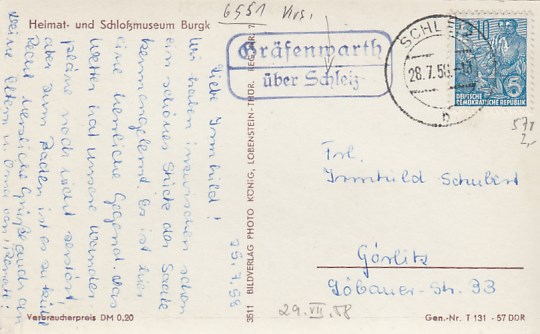 Heimat- und Schloßmuseum Burgk
6551 Krs.
Gräfenwarth
über Schleiz
SCHLEIZ
28.7.58
b
10
DEUTSCHE
DEMOKRATISCHE REPUBLIK
578
2,-
25.7.58
Liebe Irmhild!
Wir haben inzwischen schon
ein schönes Stück der Saale
kennengelernt. Es ist hier
eine herrliche Gegend. Das
Wetter hat unsere Wander-
pläne noch nicht zerstört,
aber zum Baden ist es zu kühl.
Recht herzliche Grüße auch an
Deine Eltern u. Oma von Renate!
Frl.
Irmhild Schubert
Görlitz
Löbauer-Str. 33
29. VII. 58
3511 BILDVERLAG PHOTO KÖNIG, LOBENSTEIN-THÜR. REG.-NR. 7
Verbraucherpreis DM 0,20
Gen.-Nr. T 131 - 57 DDR